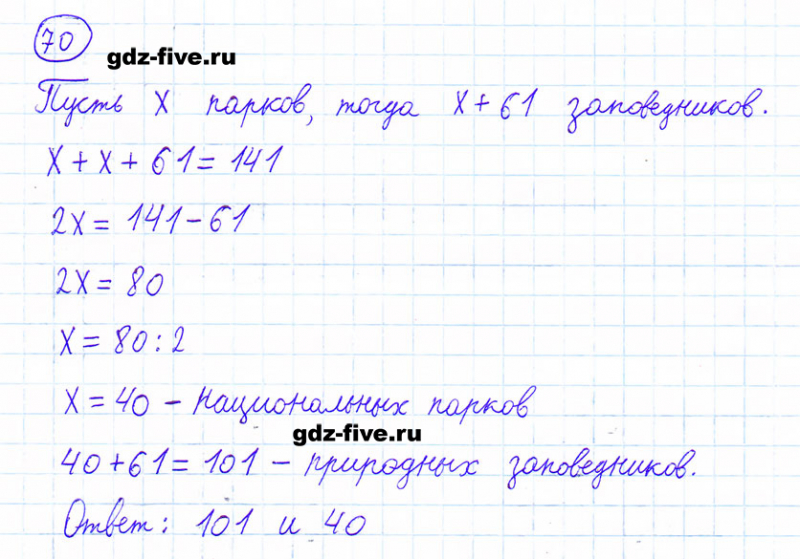 70
gdz-five.ru
Пусть x парков, тогда x + 61 заповедников.
x + x + 61 = 141
2x = 141 - 61
2x = 80
x = 80 : 2
x = 40 - национальных парков
gdz-five.ru
40 + 61 = 101 - природных заповедников.
Ответ: 101 и 40